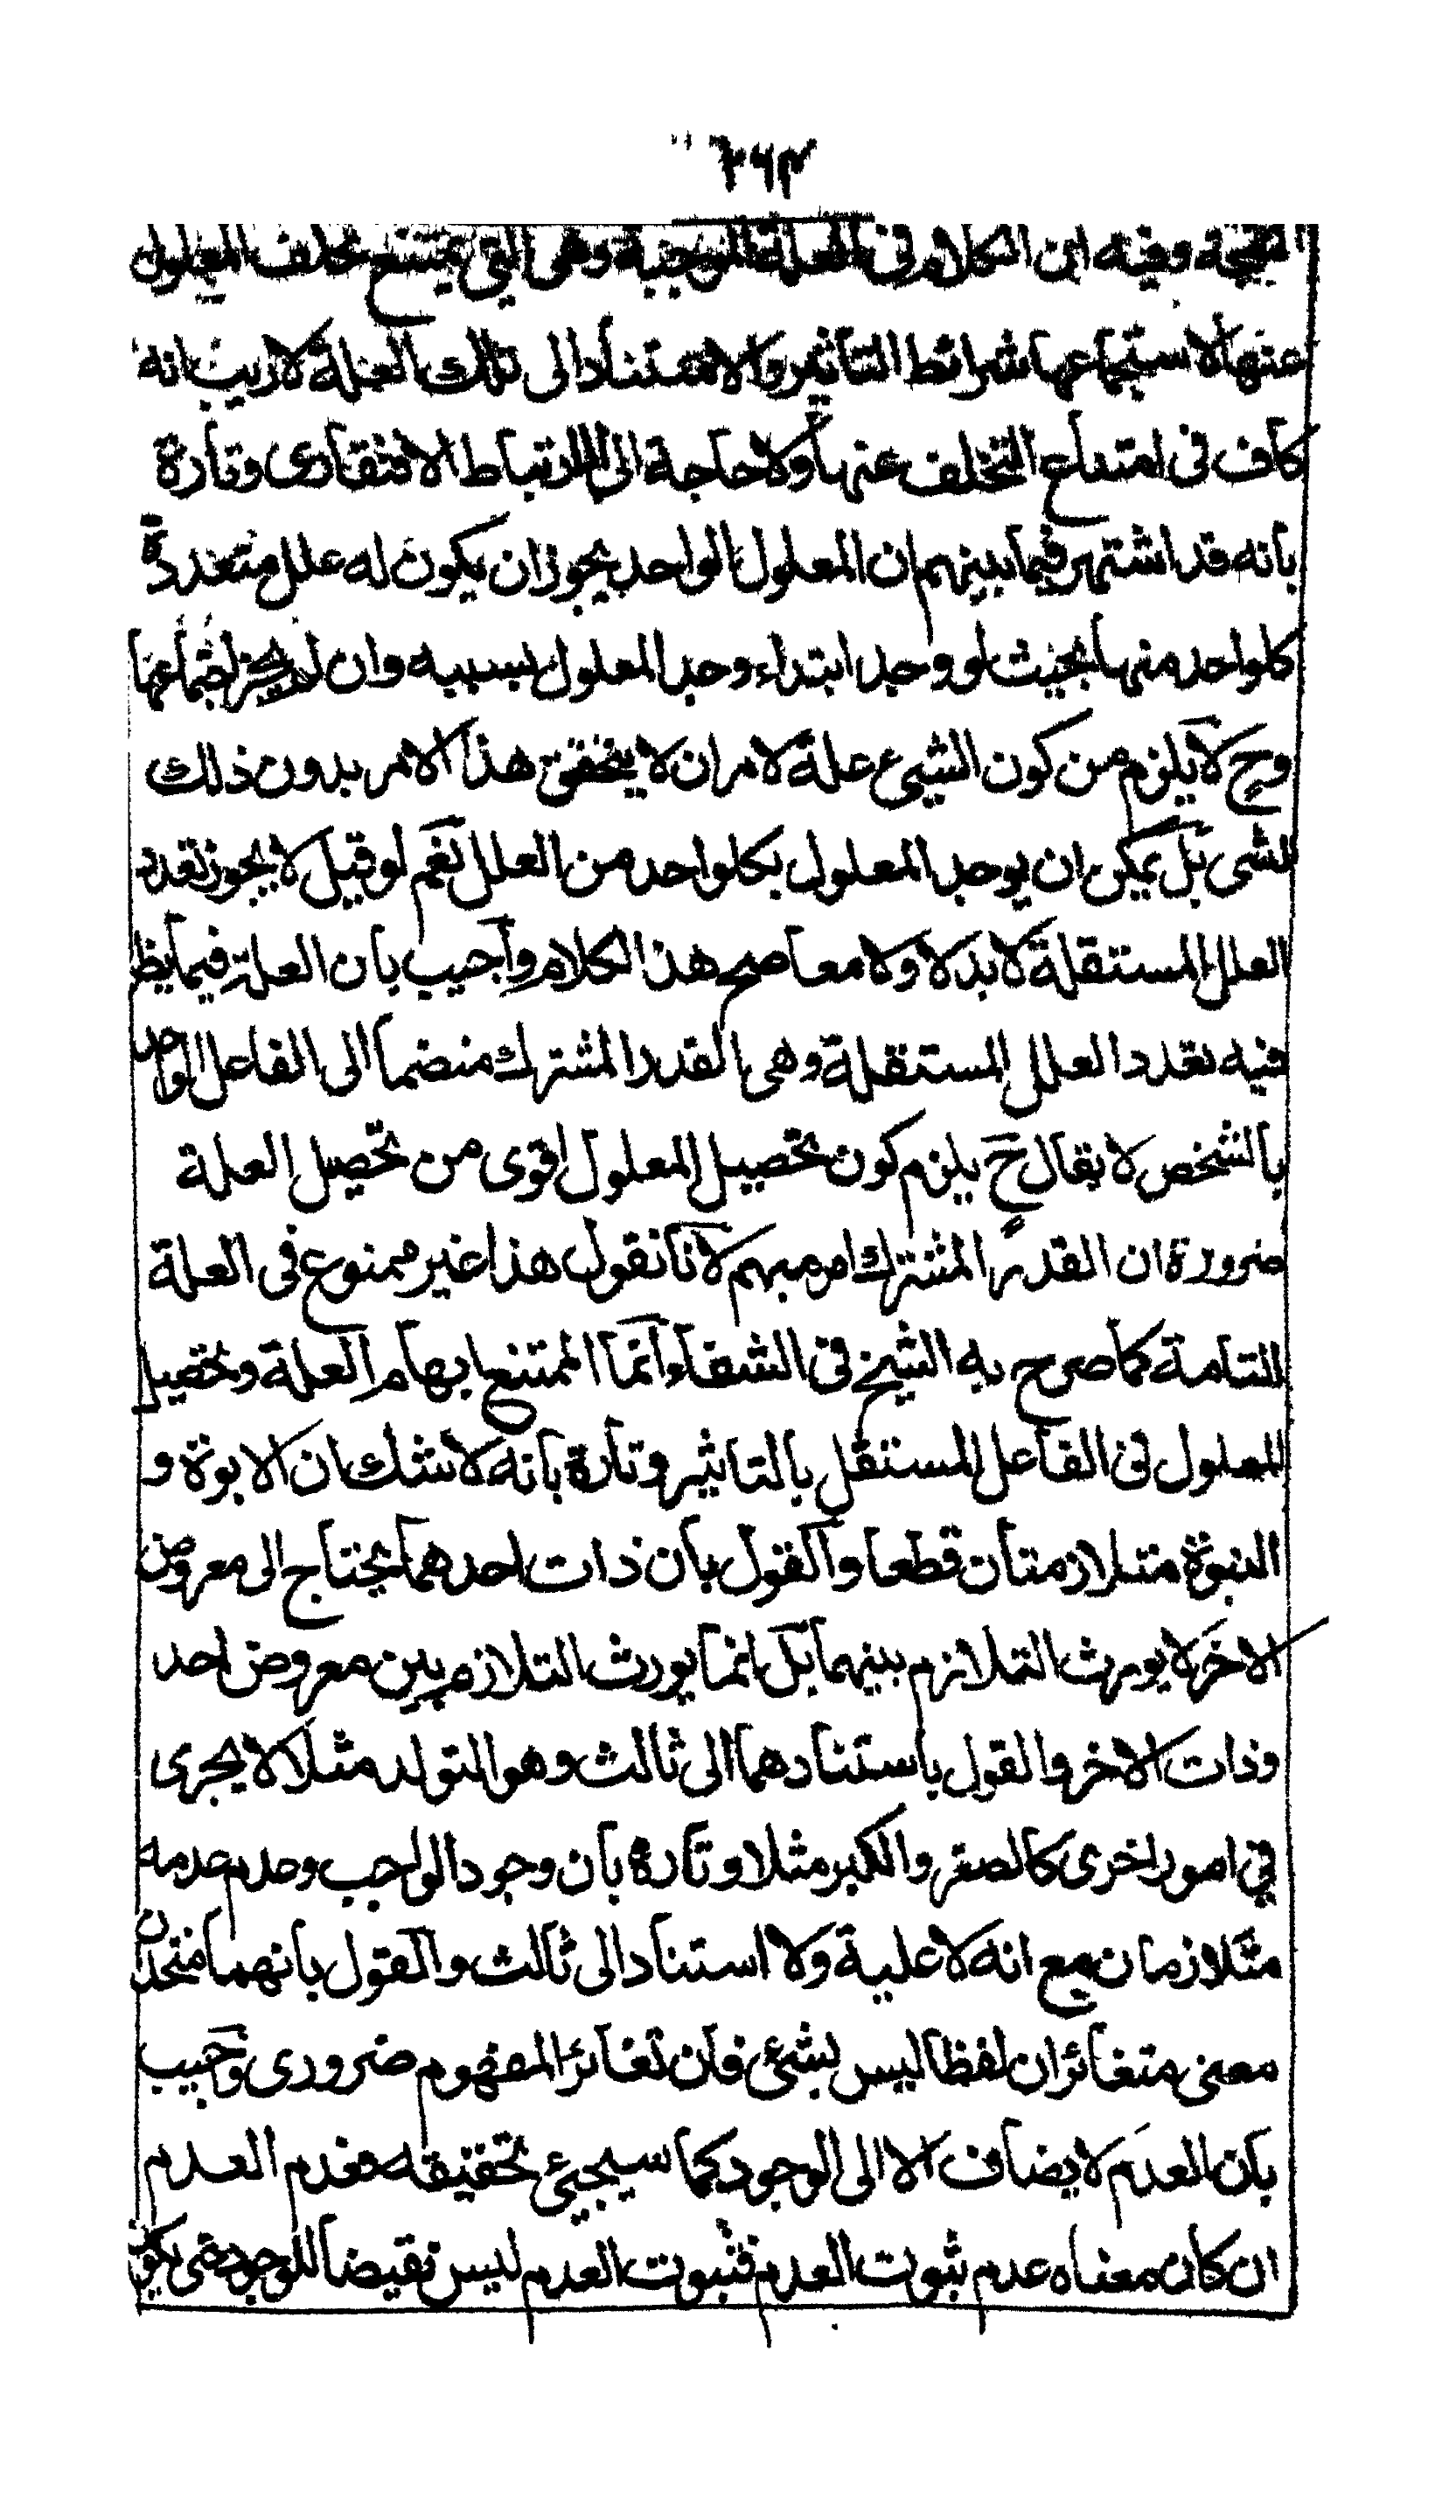 ٢٦٢
وفيه ان الكلام فى العلة الموجبة وهى التى يمتنع تخلف المعلول
عنها لاستجماعها شرائط التاثير والاستناد الى تلك العلة لا ريب انه
كاف فى امتناع التخلف عنها ولا حاجة الى الارتباط الافتقارى وتارة
بانه قد اشتهر فيما بينهم ان المعلول الواحد يجوز ان يكون له علل متعددة
كلواحد منها بحيث لو وجد ابتداء وجد المعلول بسببه وان لم يجز اجتماعها
وح لا يلزم من كون الشىء علة لامر ان لا يتحقق هذا الامر بدون ذلك
الشى بل يمكن ان يوجد المعلول بكلواحد من العلل نعم لو قيل لا يجوز تعدد
العلل المستقلة لا بدلا ولا معا صح هذا الكلام واجيب بان العلة فيما يظ
فيه تعدد العلل المستقلة وهى القدر المشترك منضما الى الفاعل الواحد
بالشخص لا يقال ح يلزم كون تحصيل المعلول اقوى من تحصيل العلة
ضرورة ان القدر المشترك امر مبهم لانا نقول هذا غير ممنوع فى العلة
التامة كما صرح به الشيخ فى الشفاء انما الممتنع ابهام العلة وتحصيل
المعلول فى الفاعل المستقل بالتاثير وتارة بانه لا شك ان الابوة و
البنوة متلازمتان قطعا والقول بان ذات احدهما يحتاج الى معروض
الاخر لا يورث التلازم بينهما بل انما يورث التلازم بين معروض احد
وذات الاخر والقول باستنادهما الى ثالث وهو التولد مثلا لا يجرى
فى امور اخرى كالصغر والكبر مثلا وتارة بان وجود الواجب وعدم عدمه
متلازمان مع انه لا علية ولا استناد الى ثالث والقول بانهما متحدان
معنى متغائران لفظا ليس بشىء فان تغائر المفهوم ضرورى واجيب
بان العدم لا يضاف الا الى الوجود كما سيجىء تحقيقه فعدم العدم
ان كان معناه عدم ثبوت العدم فثبوت العدم ليس نقيضا للوجود حتى يكون